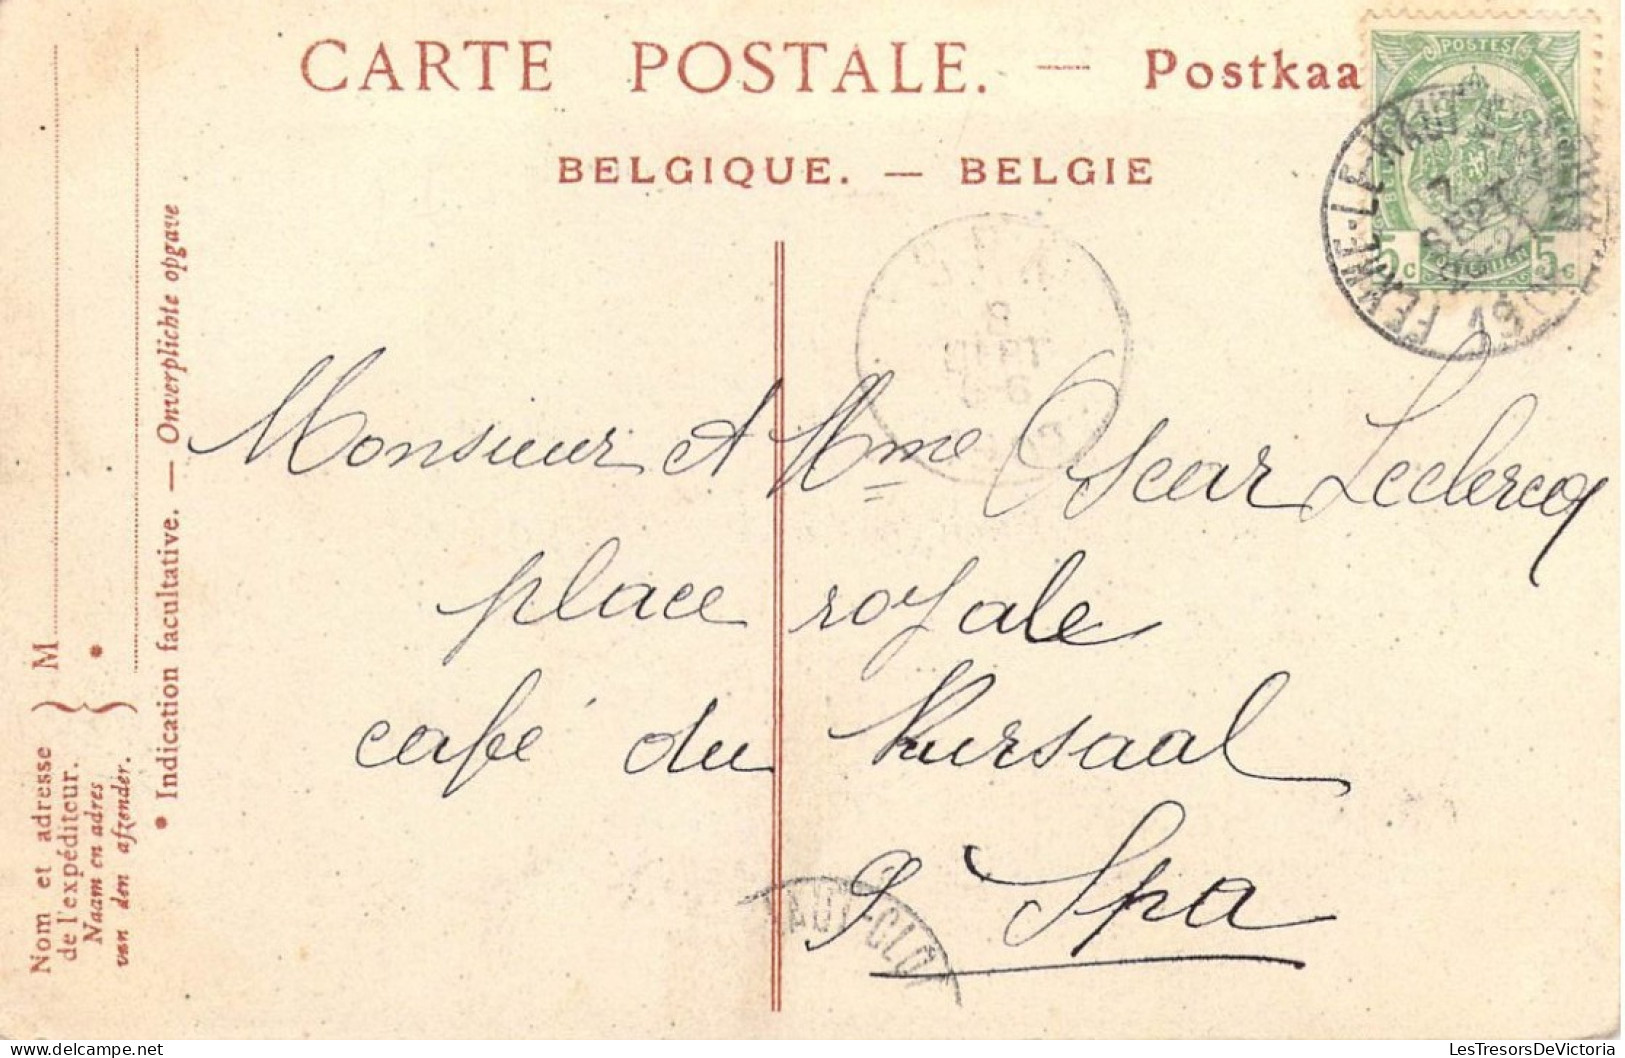 CARTE POSTALE. — Postkaa
BELGIQUE. — BELGIE
POSTES
5 c 5 c
7
SEPT
8
SEPT
Monsieur et Mme Oscar Leclercq
place royale
café du Kursaal
Spa
AUT-CLO
M
*
Nom et adresse
de l'expéditeur.
Naam en adres
van den afzender.
* Indication facultative. — Onverplichte opgave
LesTresorsDeVictoria